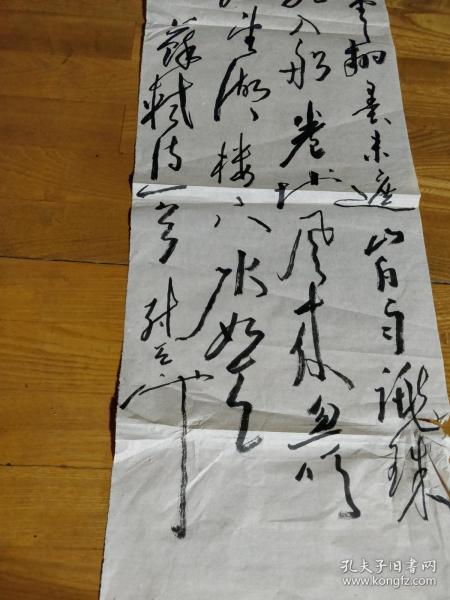 雲翻墨未遮山白雨跳珠
入船卷地风来忽吹
望湖楼下水如天
蘇軾诗一首
孔夫子旧书网
www.kongfz.com